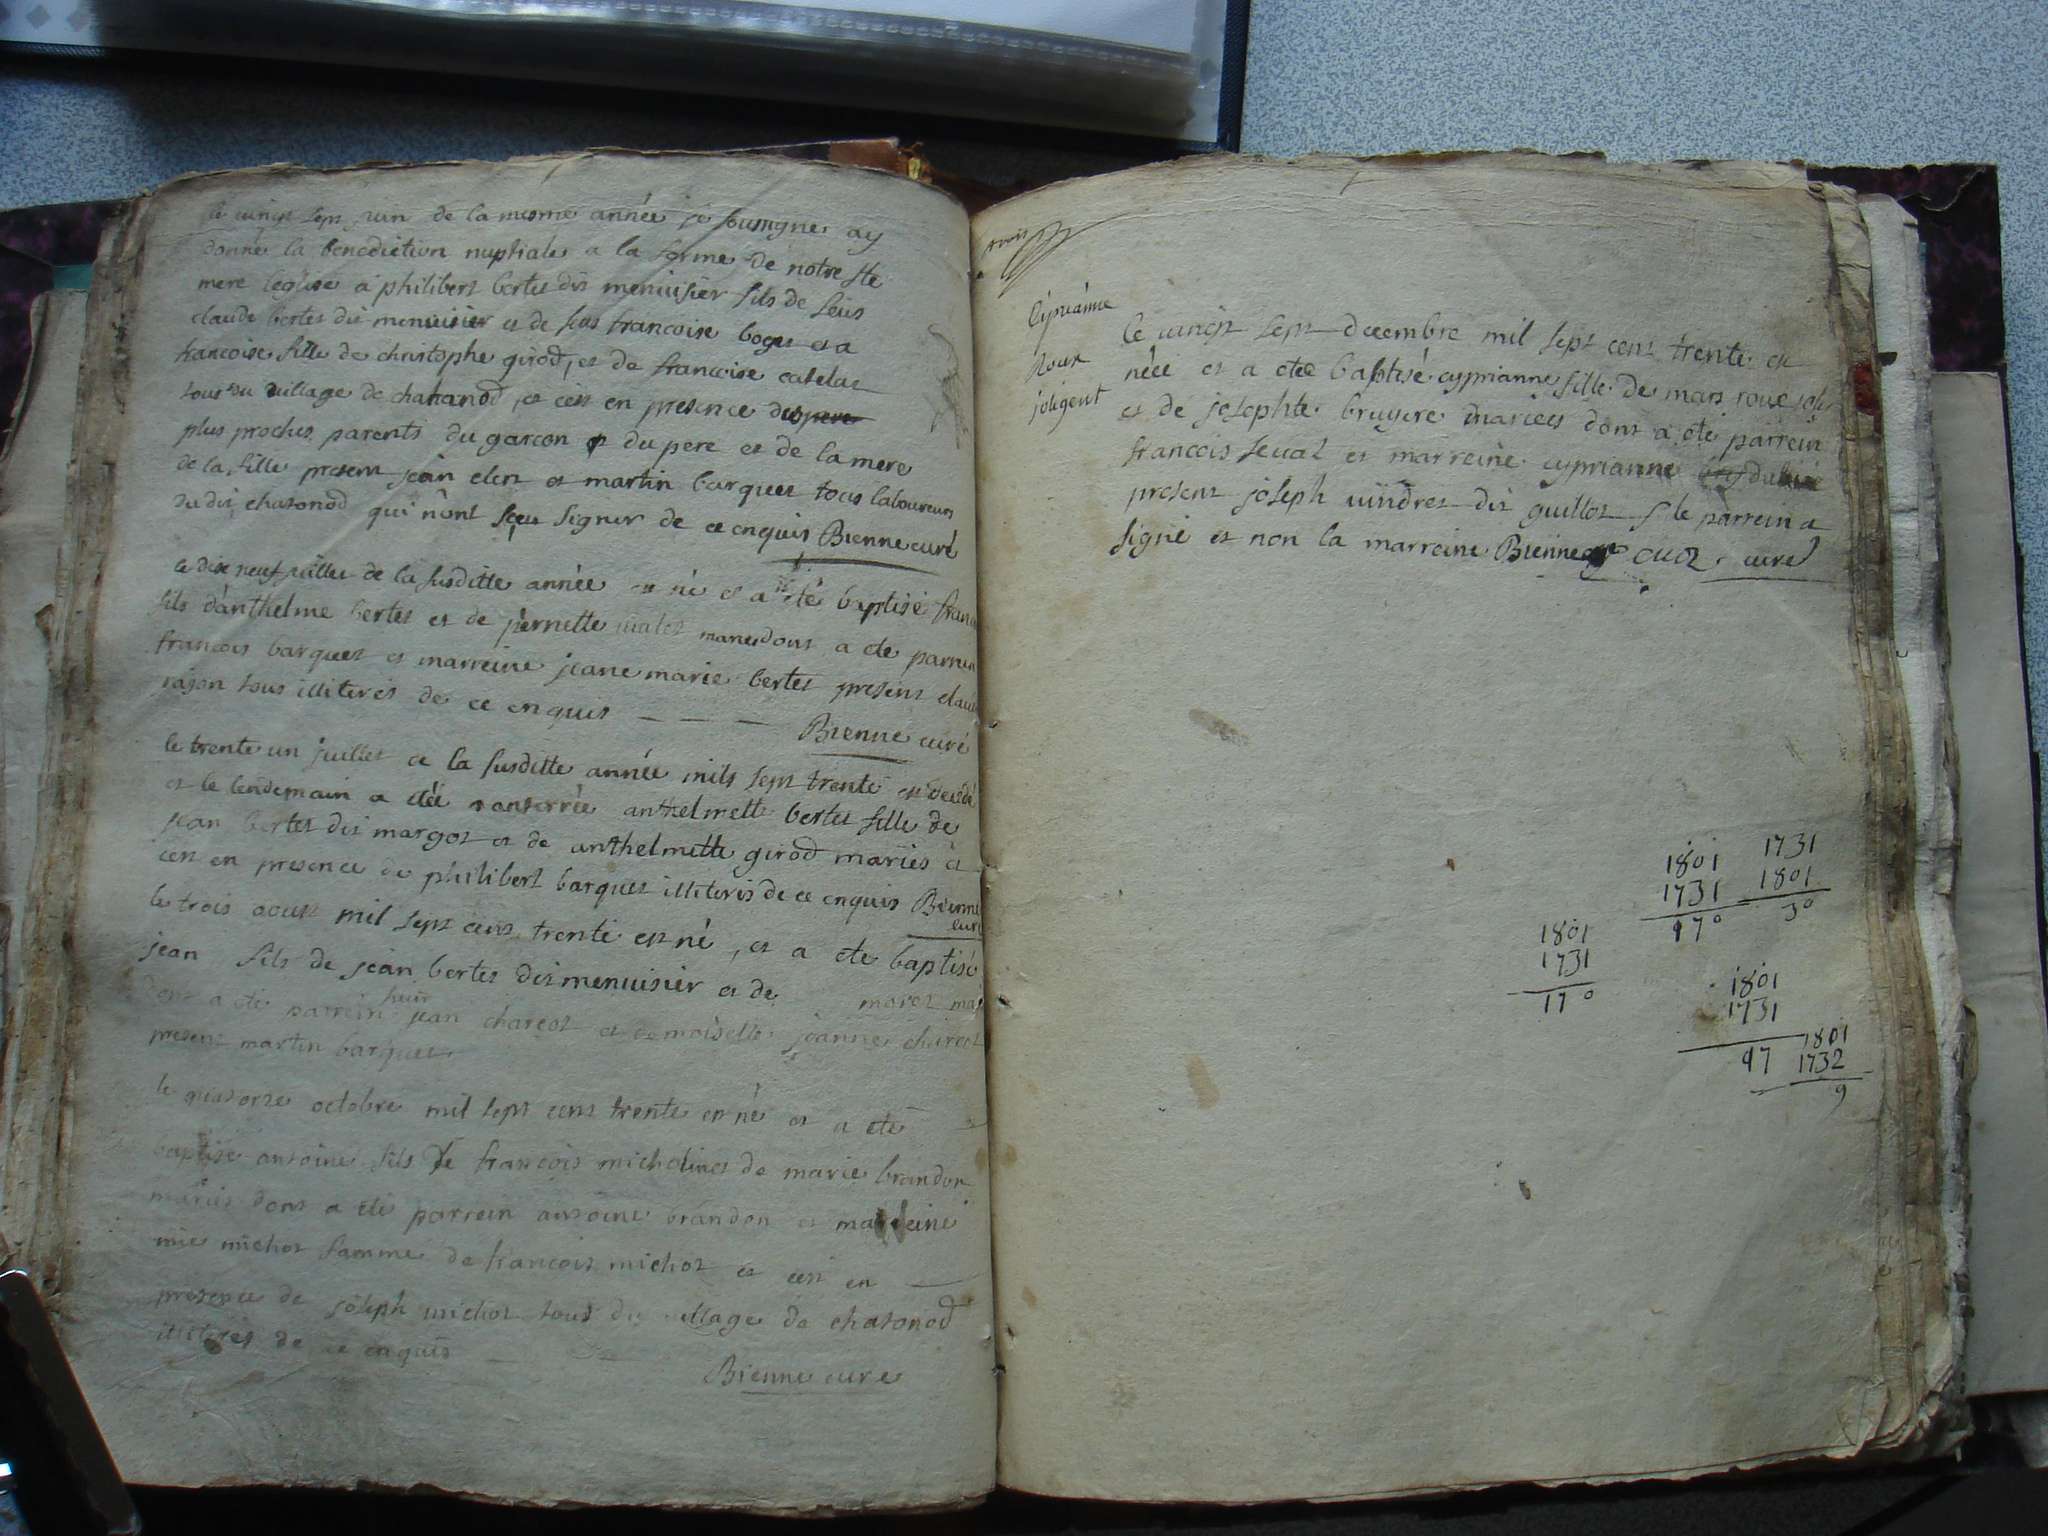 le vingt sept juin de la mesme année je soussigne ay
donné la benediction nuptiale a la forme de notre ste
mere leglise a philibert bertet dit menuisier fils de feus
claude bertet dit menuisier et de feus francoise boget et a
francoise fille de christophe girod, et de francoise catelat
tous du village de chatonod, et cest en presence des pere
plus proches parents du garcon et du pere et de la mere
de la fille present jean clert et martin barquet tous laboureurs
du dit chatonod qui nont sceu signer de ce enquis Bienne curé
le dixe neuf juillet de la susditte année est né et a été baptisé
fils danthelme bertet et de pernette maries dont a ete parrein
francois barquet et marreine jeane marie bertet present claude
rajon tous illiteres de ce enquis
Bienne curé
le trente un juillet de la susditte année mils sept trente est decedé
et le lendemain a etée enterrée anthelmette bertet fille de
jean bertet dit margot et de anthelmette girod mariés et
cest en presence de philibert barquet illiteris de ce enquis Bienne
curé
le trois aoust mil sept cent trente est né, et a ete baptisé
jean fils de jean bertet dit menuisier et de maret
dont a eté parrein jean charcot et demoiselle joanne charcot
present martin barquet
le quatorze octobre mil sept cent trente est né et a eté
baptisé antoine fils de francois michot et de marie brandon
mariés dont a eté parrein antoine brandon et marreine
mie michot famme de francois michot et cest en
presence de joseph michot tous du village de chatonod
illiteres de ce enquis
Bienne curé
trois
Ciprianne
Roux
joligent
le vingt sept decembre mil sept cent trente est
néee et a etée baptisé cyprianne fille de roux
et de josephte bruyere mariées dont a eté parrein
francois seval et marreine cyprianne
present joseph dit guillot le parrein a
signé et non la marreine Bienne curé
1801
1731
170
1731
1801
30
1801
1731
170
1801
1731
97
1801
1732
9